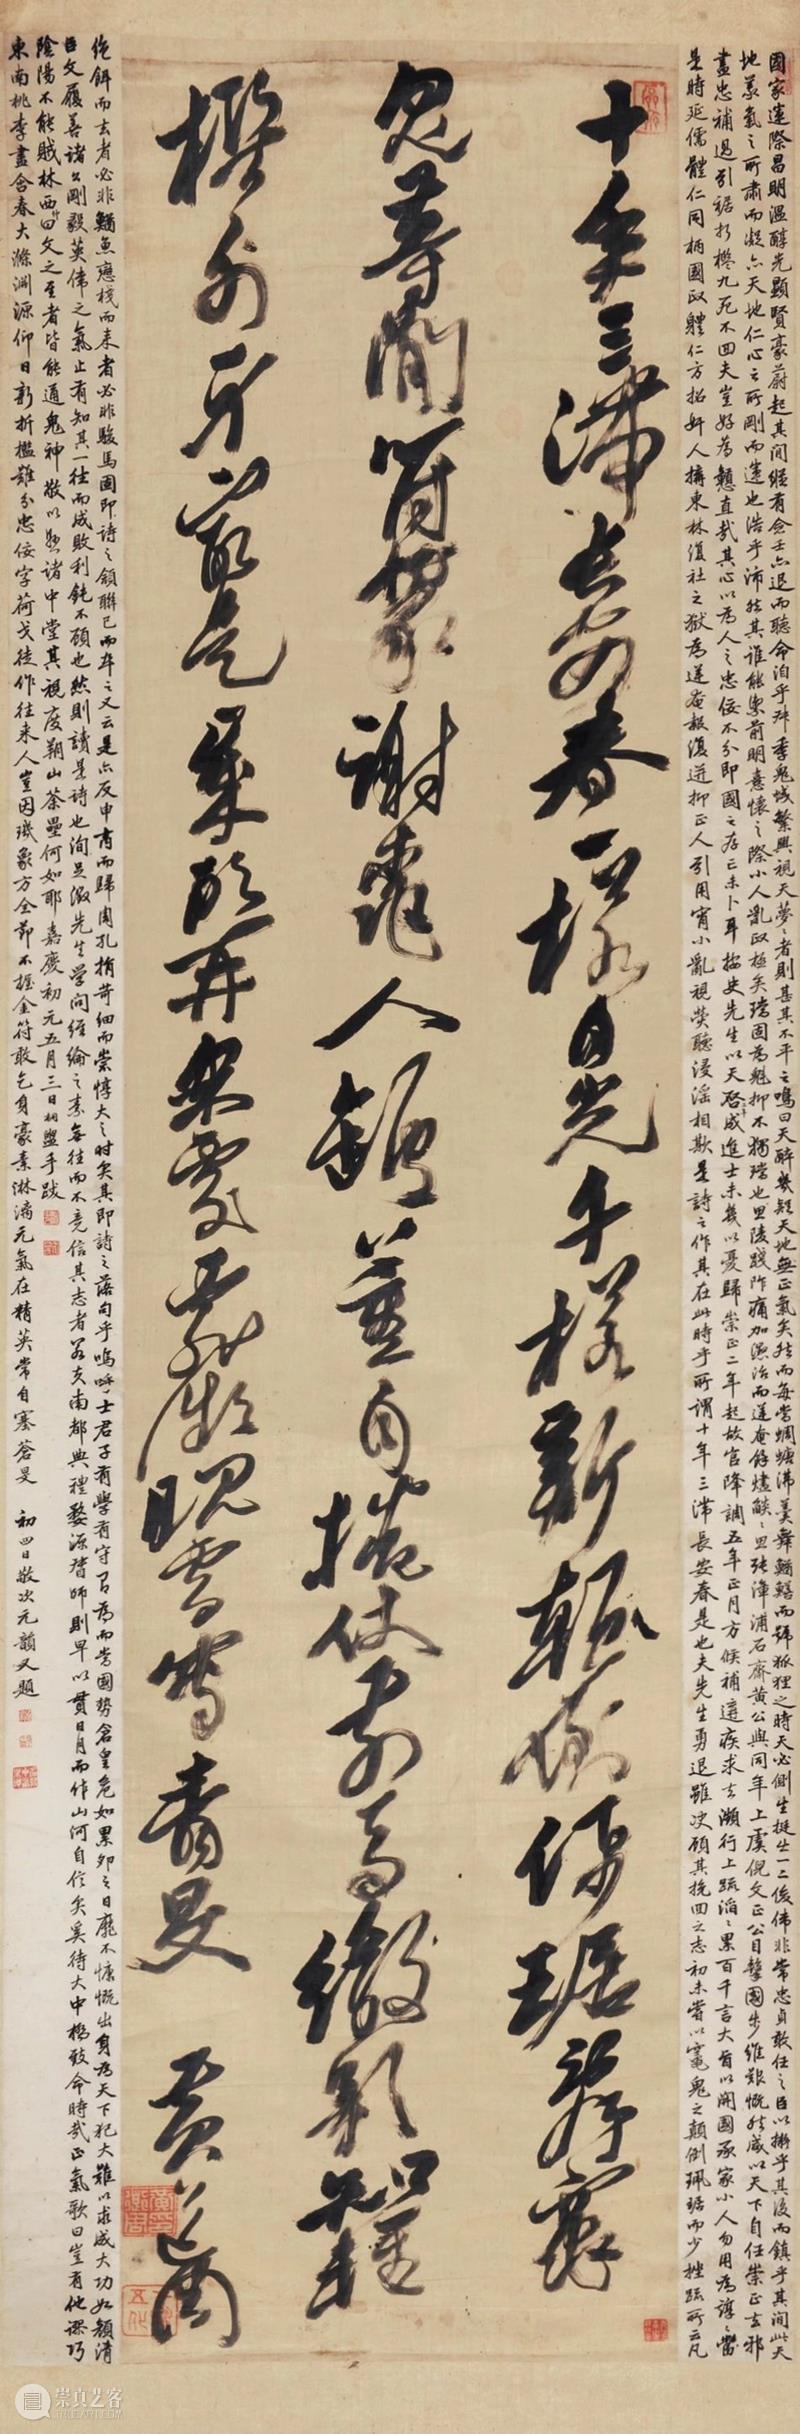 國家運際昌明溫醇光顯賢豪蔚起其間縱有僉壬亦退而聽命洎乎叔季鬼蜮繁興視天夢夢者則甚其不平之鳴曰天醉幾疑天地無正氣矣然而每當蜩螗沸羹舞鰌鱔而號狐狸之時天必側生挺生一二俊偉非常忠貞敢任之臣以撕乎其後而鎮乎其間此天
地義氣之所肅而凝亦天地仁心之所剛而達也浩乎沛然其誰能禦前明熹懷之際小人亂政極矣璫固為魁抑不獨璫也思陵踐阼痛加濯治而逆奄餘燼燄燄思張漳浦石齋黃公與同年上虞倪文正公目擊國步維艱慨然咸以天下自任崇正去邪
盡忠補過引裾折檻九死不回夫豈好為戇直哉其心以為人之忠佞不分即國之存亡未卜耳按史先生以天啓成進士未幾以憂歸崇正二年起故官降調五年正月方候補遘疾求去瀕行上疏滔滔累百千言大旨以開國承家小人勿用為諄諄當
是時延儒體仁同柄國政體仁方招奸人搆東林復社之獄為逆奄報復逆抑正人引用宵小亂視熒聽浸淫相欺是詩之作其在此時乎所謂十年三滯長安春是也夫先生勇退雖決顧其挽回之志初未嘗以竈鬼之顛倒珮琚而少挫疏所云凡
十年三滯長安春一樣日光千樣新顛倒佩琚辭竈
鬼等閒符籙謝龜人蓋自捲仗前馬繳影難羅
檻外身最是再來處晚雪寄青旻 黃道周
絶餌而去者必非鰌魚戀棧而來者必非駿馬固即詩之頷聯已而卒之又云是亦反申商而歸周孔捐苛細而崇惇大之時矣其即詩之落句乎嗚呼士君子有學有守有為而當國勢倉皇危如累卵之日靡不慷慨出身為天下犯大難以求成大功如顏清
臣文履善諸公剛毅英偉之氣止有知其一往而成敗利鈍不顧也然則讀是詩也洵足徵先生學問經綸之素每往而不竟信其志者若夫南都典禮婺源督師則早以貫日月而作山河自信矣奚待大中橋致命時哉正氣歌曰豈有他謬巧
陰陽不能賊林西仲曰文之至者皆能通鬼神敬以懸諸中堂其視度朔山荼壘何如耶嘉慶初元五月三日相盥手跋
東南桃李盡含春大滌淵源仰日新折檻難分忠佞字荷戈徒作往來人豈因璣象方全節不握金符敢乞身豪素淋漓元氣在精英常自塞蒼旻 初四日敬次元韻又題